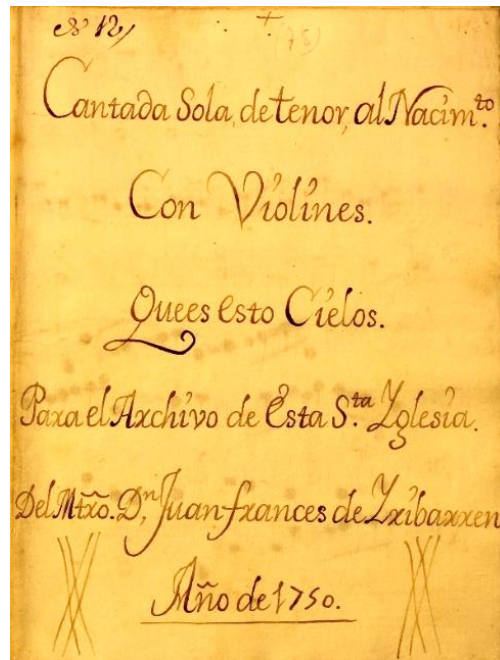 Nº 12,
+ (78)
Cantada Sola, de tenor, al Nacim.to
Con Violines.
Quees esto Cielos.
Para el Archivo de Esta S.ta Yglesia.
Del Mtro. D.n Juan frances de Yribarren
Año de 1750.